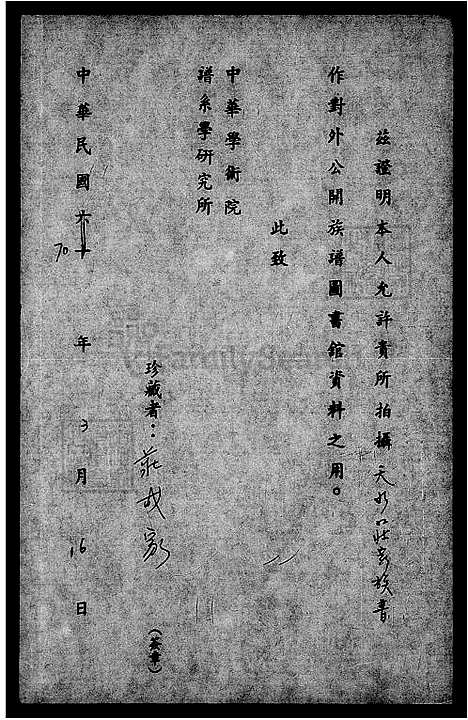 茲證明本人允許貴所拍攝天水莊嚴族書
作對外公開族譜圖書館資料之用。
此致
中華學術院
譜系學研究所
珍藏者：莊
(簽章)
中華民國六十
70
年 3 月 16 日
FamilySearch